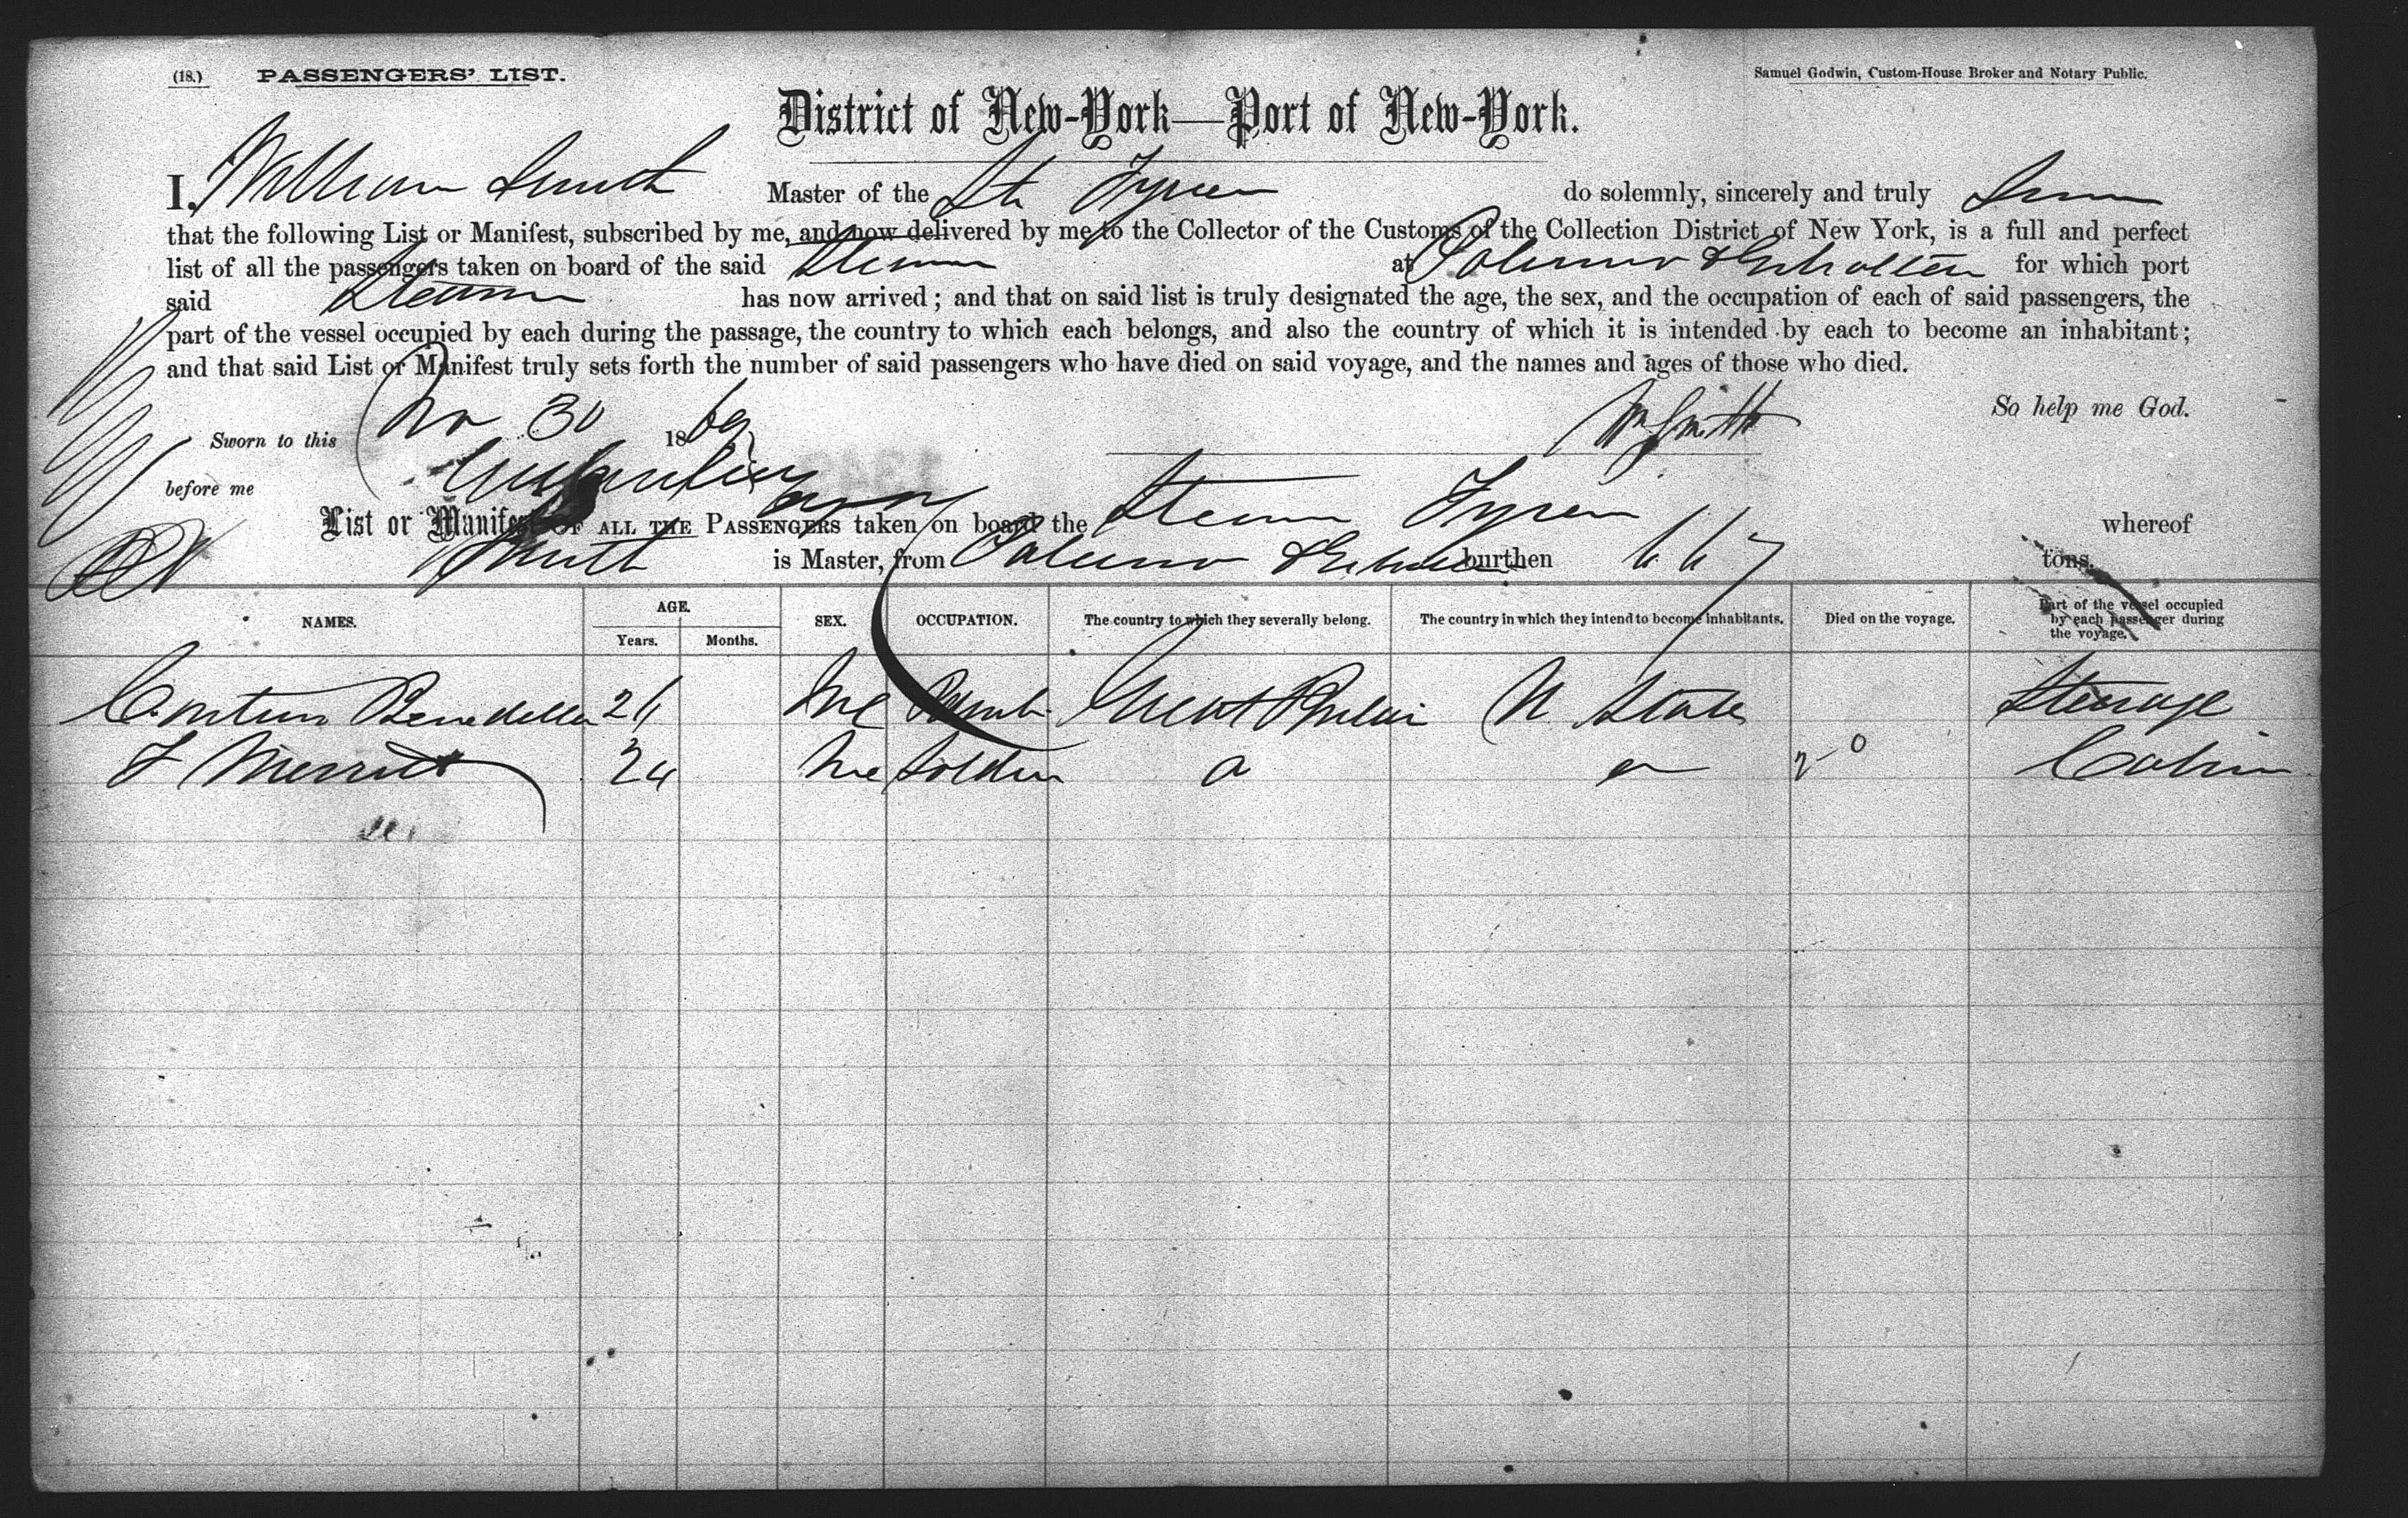 (18.) PASSENGERS' LIST. Samuel Godwin, Custom-House Broker and Notary Public.
District of New-York—Port of New-York.
I, William Smith Master of the St do solemnly, sincerely and truly
that the following List or Manifest, subscribed by me, and now delivered by me to the Collector of the Customs of the Collection District of New York, is a full and perfect
list of all the passengers taken on board of the said Steamer at Palermo & Gibraltar for which port
said Steamer has now arrived; and that on said list is truly designated the age, the sex, and the occupation of each of said passengers, the
part of the vessel occupied by each during the passage, the country to which each belongs, and also the country of which it is intended by each to become an inhabitant;
and that said List or Manifest truly sets forth the number of said passengers who have died on said voyage, and the names and ages of those who died.
So help me God.
Sworn to this Nov 30 1869 Wm Smith
before me
List or Manifest OF ALL THE PASSENGERS taken on board the Steamer whereof
Smith is Master, from Palermo & burthen 667 tons.
NAMES. AGE. Years. Months. SEX. OCCUPATION. The country to which they severally belong. The country in which they intend to become inhabitants. Died on the voyage. Part of the vessel occupied by each passenger during the voyage.
Benedetto 26 Me Great Britain U States Steerage
F Merritt 24 Me Soldier Cabin